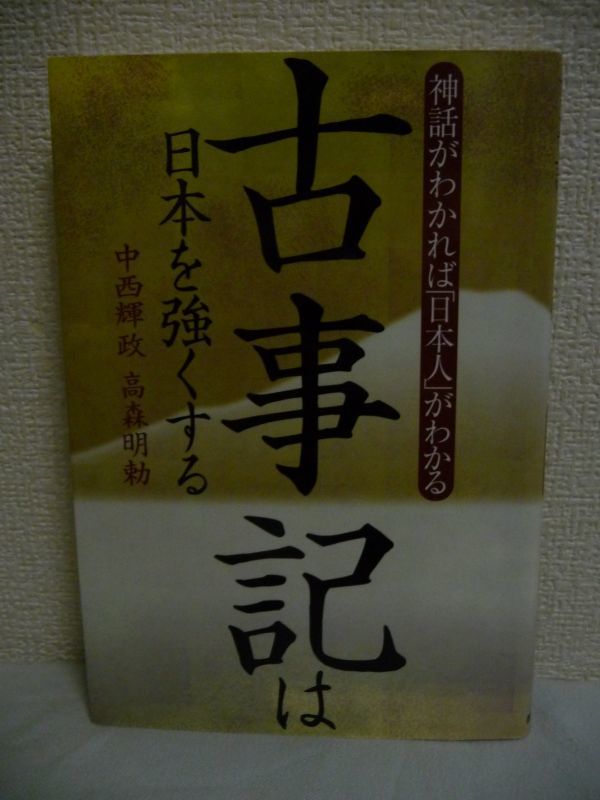 神話がわかれば「日本人」がわかる
古事記は
日本を強くする
中西輝政 高森明勅